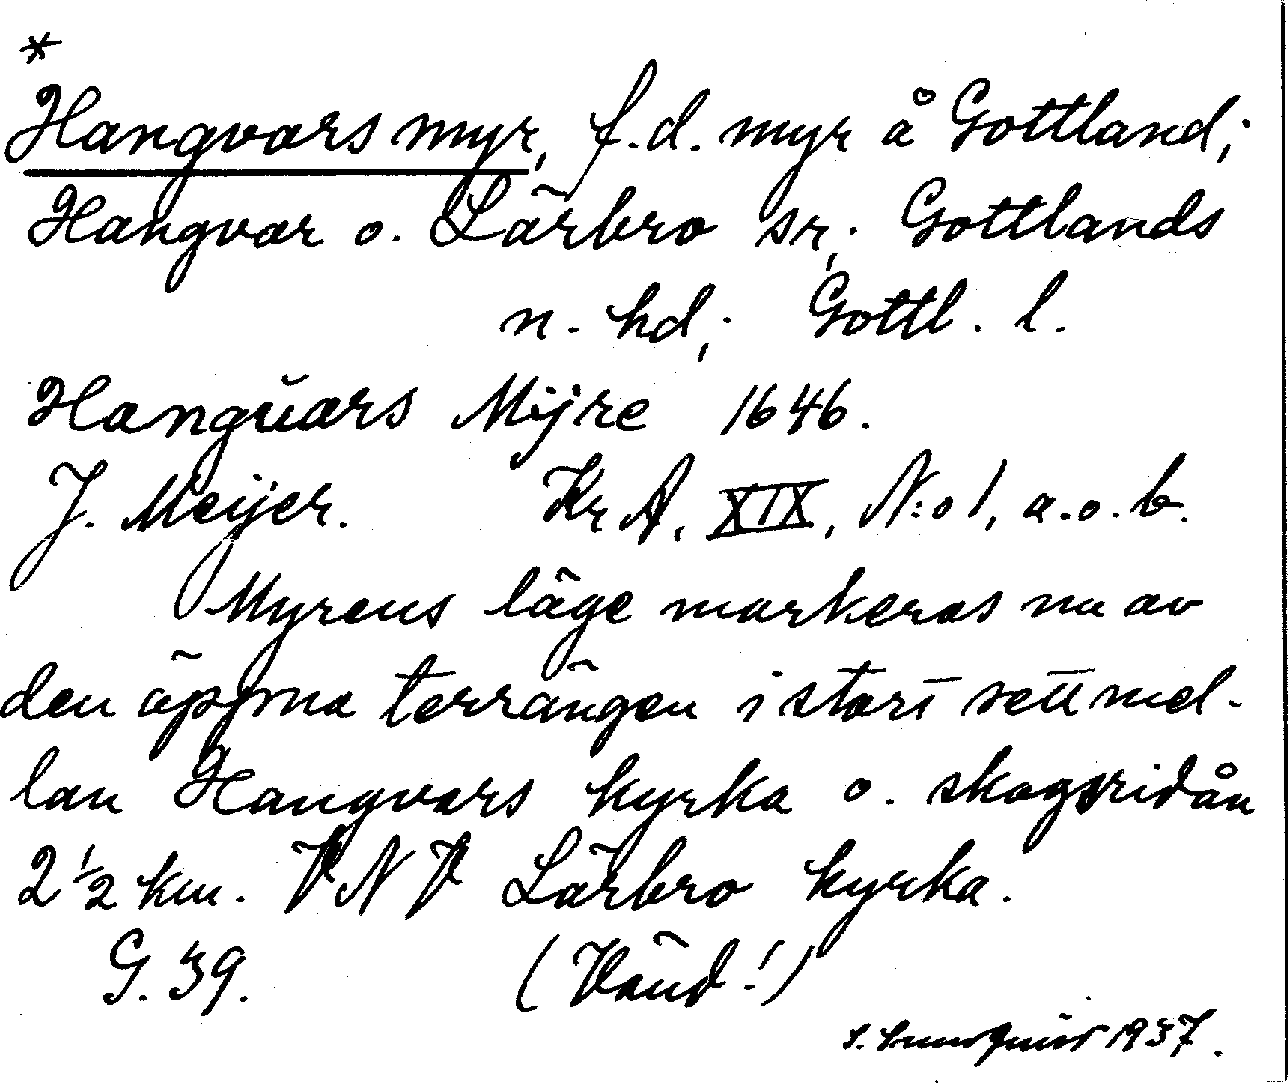 *
Hangvars myr, f.d. myr å Gottland;
Hangvar o. Lärbro sr; Gottlands
n. hd; Gottl. l.
Hangŭars Mÿre 1646.
J. Meijer. Kr A, XIX, N:o 1, a.o.b.
Myrens läge markeras nu av
den öppna terrängen i stort sett mel-
lan Hangvars kyrka o. skogsridån
2 1/2 km. VNV Lärbro kyrka.
G. 39. (Vänd!)
1937.